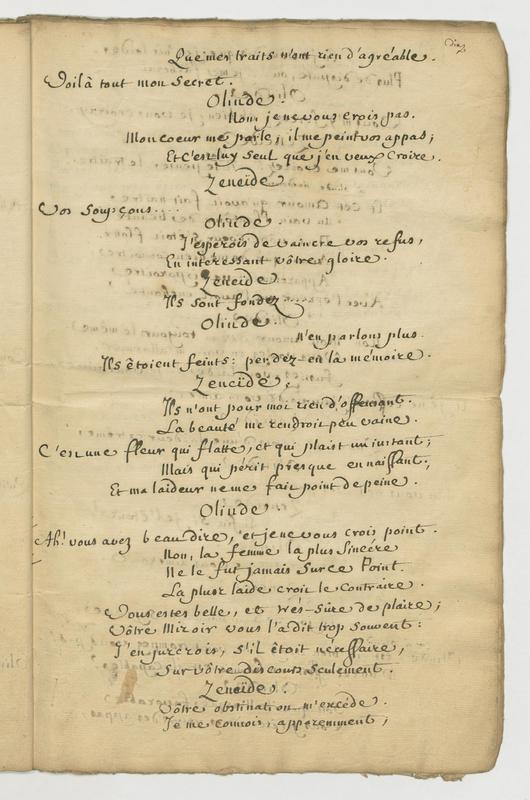 dix
Que mes traits n'ont rien d'agréable.
Voilà tout mon secret.
Olinde.
Non, je ne vous crois pas.
Mon coeur me parle, il me peint vos appas;
Et C'est luy seul que j'en veux Croire.
Zeneïde
Vos Soupçons...
Olinde
J'esperois de vaincre vos refus,
En interessant vôtre gloire.
Zeneïde
Ils sont fondez
Olinde.
N'en parlons plus.
Ils êtoient feints: perdez en la mémoire.
Zeneïde.
Ils n'ont pour moi rien d'offensant.
La beauté me rendroit peu vaine.
C'est une fleur qui flatte, et qui plaist un instant;
Mais qui périt presque en naissant,
Et ma laideur ne me fait point de peine.
Olinde.
Ah! vous avez beau dire, et je ne vous crois point.
Non, la femme la plus Sincere
Ne le fut jamais Sur ce Point
La plus laide croit le Contraire.
Vous estes belle, et trés-Sûre de plaire;
Vôtre Miroir vous l'a dit trop Souvent:
J'en jurerois, S'il êtoit nécessaire,
Sur vôtre discours Seulement.
Zeneïde.
Votre obstination m'excéde.
Je me connois, apparemment;